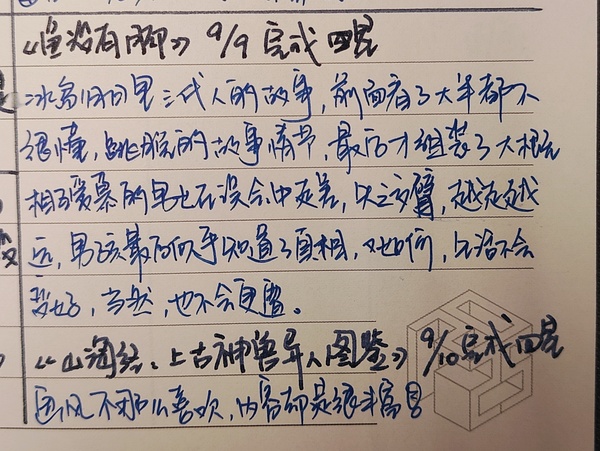 《鱼没有脚》 9/9 完成 四星
冰岛旧日是三代人的故事，前面看了大半都不
很懂，跳脱的故事情节，最后才组装了大概
相爱慕的是也在误会中走差，失之交臂，越走越
远，男孩最后似乎知道了真相，又如何，生活不会
变好，当然，也不会更糟。
《山海经：上古神兽异人图鉴》 9/10 完成 四星
画风不那么喜欢，内容却是很丰富